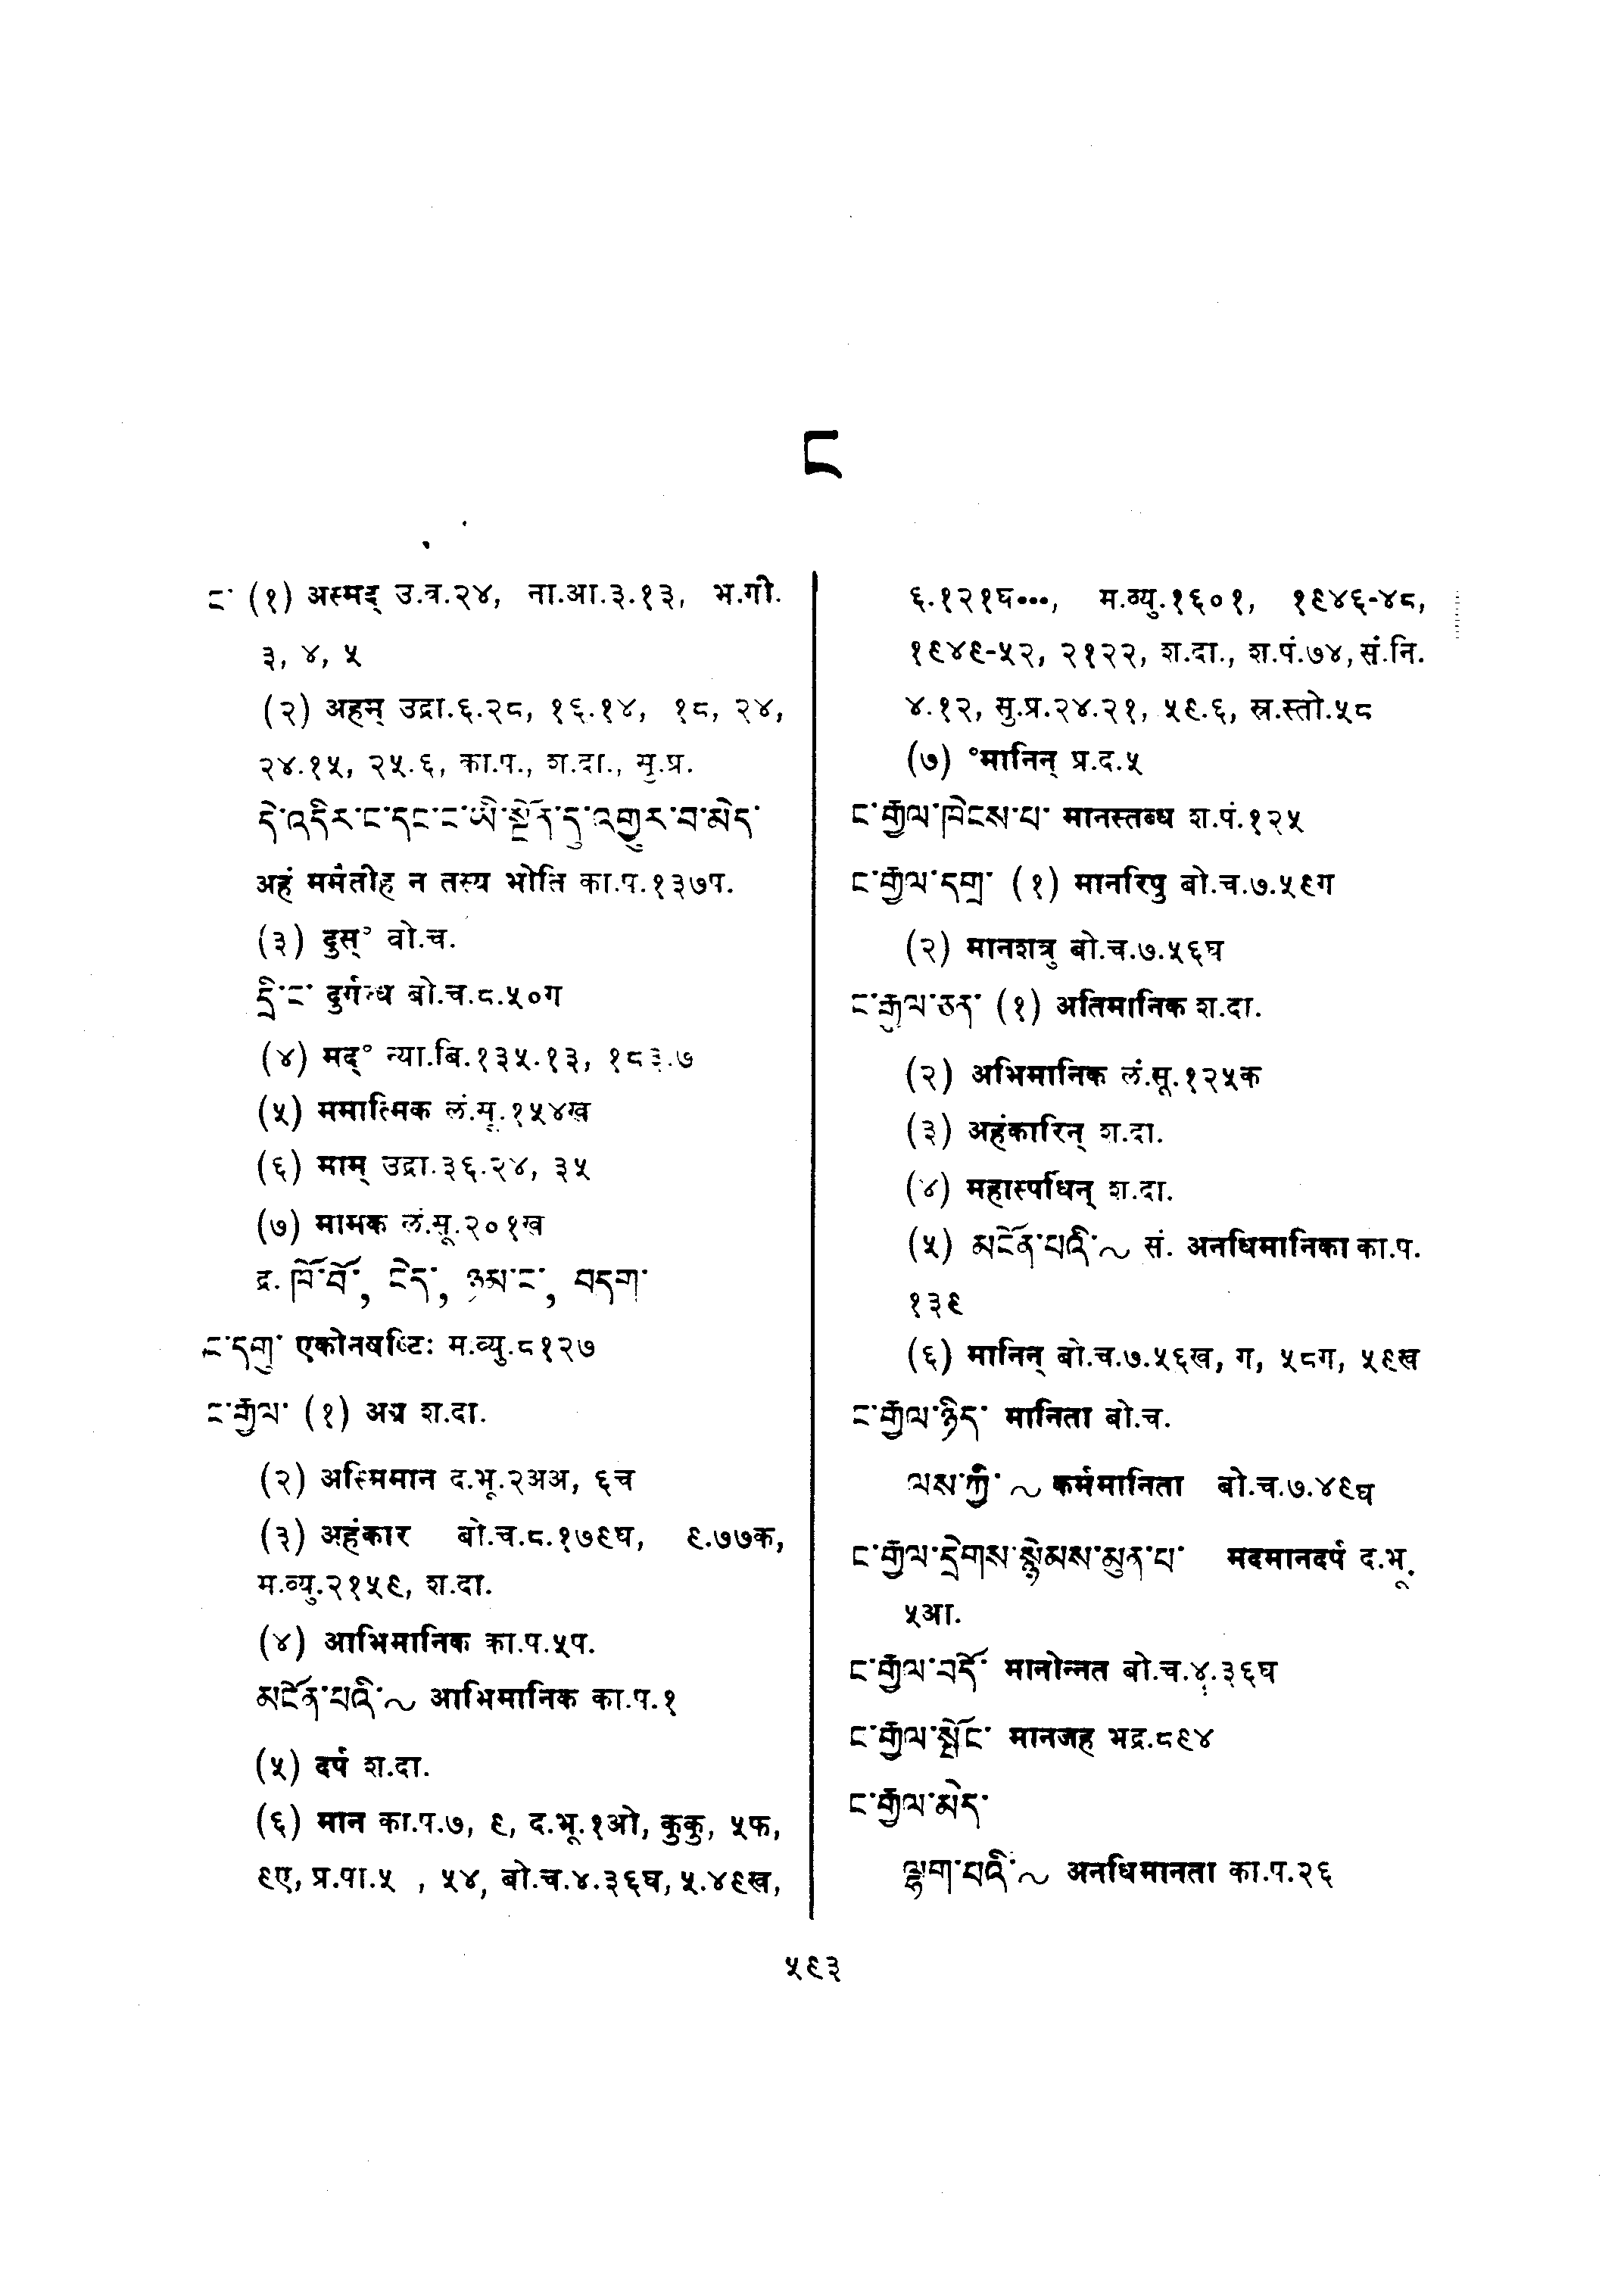 ང
ང་ (१) अस्मद् उ.त्र.२४, ना.आ.३.१३, भ.गी.
३, ४, ५
(२) अहम् उद्रा.६.२८, १६.१४, १८, २४,
२४.१५, २५.६, का.प., श.दा., सु.प्र.
དེ་འདིར་ང་དང་ང་ཡི་སྔོན་དུ་འགྱུར་བ་མེད་
अहं ममंतीह न तस्य भोति का.प.१३७प.
(३) दुस्° बो.च.
དྲི་ང་ दुर्गन्ध बो.च.८.५०ग
(४) मद्° न्या.बि.१३५.१३, १८३.७
(५) ममात्मिक लं.सू.१५४ख
(६) माम् उद्रा.३६.२४, ३५
(७) मामक लं.सू.२०१ख
द्र. ཁོ་བོ་, ངེད་, ཉམ་ང་, བདག་
ང་དགུ་ एकोनषष्टिः म.व्यु.८१२७
ང་རྒྱལ་ (१) अग्र श.दा.
(२) अस्मिमान द.भू.२अअ, ६च
(३) अहंकार बो.च.८.१७९घ, ९.७७क,
म.व्यु.२१५९, श.दा.
(४) आभिमानिक का.प.५प.
མངོན་པའི་~ आभिमानिक का.प.१
(५) दर्प श.दा.
(६) मान का.प.७, ९, द.भू.१ओ, कुकु, ५फ,
९ए, प्र.पा.५ , ५४, बो.च.४.३६घ, ५.४९ख,
६.१२१घ•••, म.व्यु.१६०१, १९४६-४८,
१९४९-५२, २१२२, श.दा., श.पं.७४, सं.नि.
४.१२, सु.प्र.२४.२१, ५९.६, स्र.स्तो.५८
(७) °मानिन् प्र.द.५
ང་རྒྱལ་ཁེངས་པ་ मानस्तब्ध श.पं.१२५
ང་རྒྱལ་དགྲ་ (१) मानरिपु बो.च.७.५९ग
(२) मानशत्रु बो.च.७.५६घ
ང་རྒྱལ་ཅན་ (१) अतिमानिक श.दा.
(२) अभिमानिक लं.सू.१२५क
(३) अहंकारिन् श.दा.
(४) महास्पर्धिन् श.दा.
(५) མངོན་པའི་~ सं. अनधिमानिका का.प.
१३९
(६) मानिन् बो.च.७.५६ख, ग, ५८ग, ५९ख
ང་རྒྱལ་ཉིད་ मानिता बो.च.
ལས་ཀྱི་ ~ कर्ममानिता बो.च.७.४९घ
ང་རྒྱལ་དྲེགས་སྙེམས་མུན་པ་ मदमानदर्प द.भू.
५आ.
ང་རྒྱལ་བདོ་ मानोन्नत बो.च.४.३६घ
ང་རྒྱལ་སྤོང་ मानजह भद्र.८९४
ང་རྒྱལ་མེད་
ལྷག་པའི་~ अनधिमानता का.प.२६
५९३